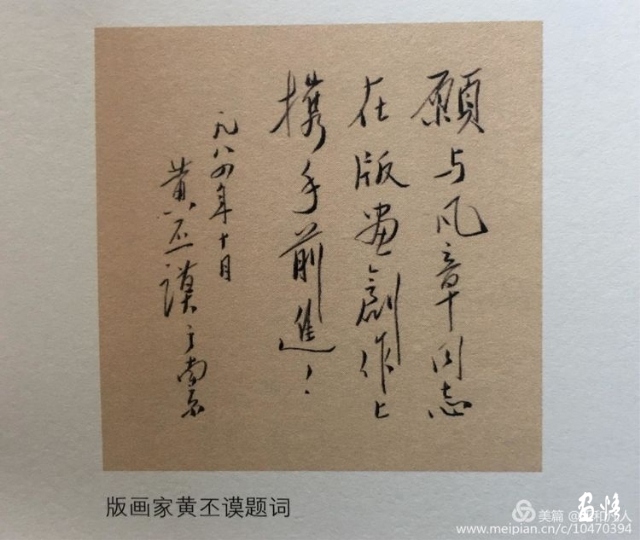 願与风章同志
在版画創作上
携手前進！
一九八四年十月
黄丕謨于南京
版画家黄丕谟题词
美篇
www.meipian.cn/c/10470394